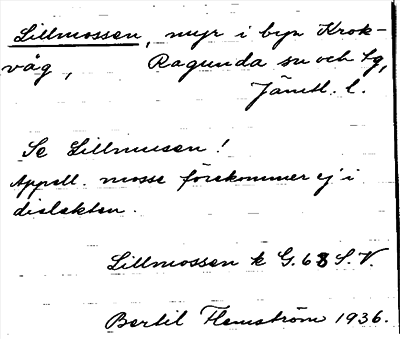 Lillmossen, myr i byn Krok-
våg, Ragunda sn och tg,
Jämtl. l.
Se Lillmusen!
Appell. mosse förekommer ej i
dialekten.
Lillmossen k G. 63 S.V.
Bertil Flemström 1936.